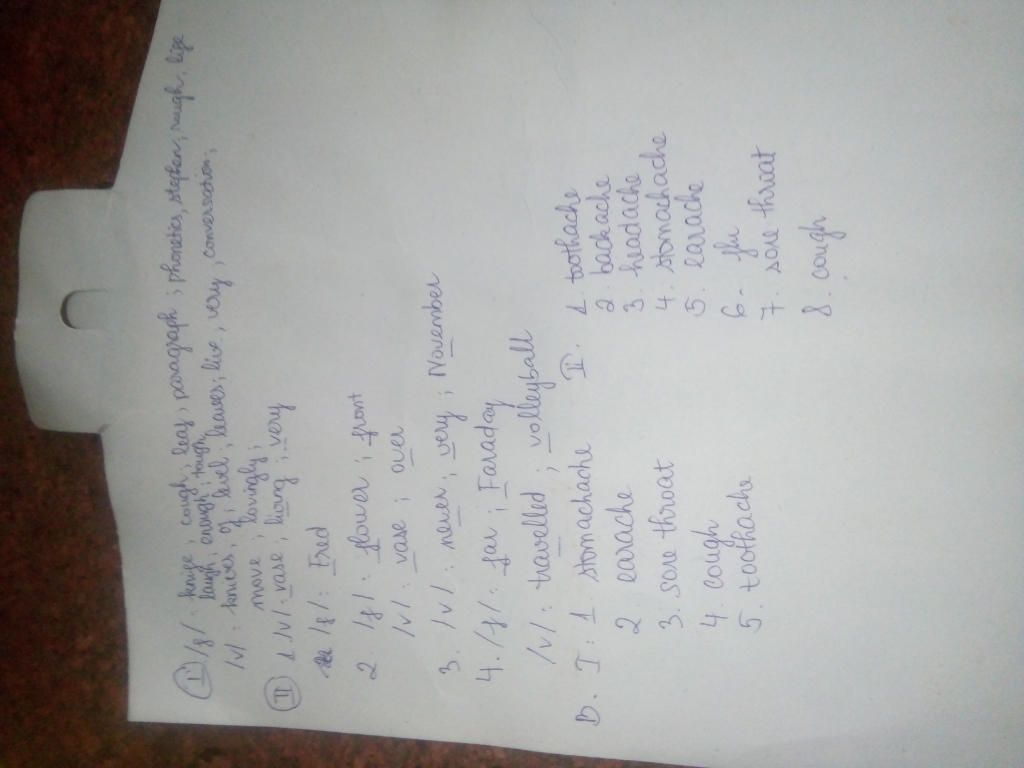 I /f/: knife; cough; leaf; paragraph; phonetics, stephen; rough, life
laugh; enough; tough,
/v/: knives; of; level; leaves; live; very, conversation;
move; lovingly;
II 1. /v/: vase; living; very
/f/: Fred
2. /f/: flower; front
/v/: vase; over
3. /v/: never; very; November
4. /f/: far; Faraday
/v/: travelled; volleyball
B. I: 1. stomachache
2. earache
3. sore throat
4. cough
5. toothache
II. 1. toothache
2. backache
3. headache
4. stomachache
5. earache
6- flu
7. sore throat
8. cough